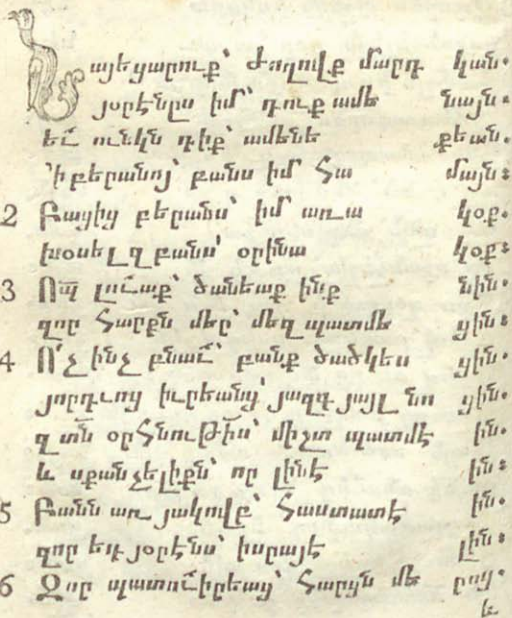 Նայեցարուք՝ ժողովք մարդ կան.
յօրէնըս իմ՝ դուք ամե նայն.
եւ ունկն դիք՝ ամենե քեան.
՚ի բերանոյ՝ բանս իմ հա մայն։
2 Բացից բերանս՝ իմ առա կօք.
խօսել զբանս՝ օրինա կօք։
3 Որ լուաք՝ ծանեաք ինք նին.
զոր հարքն մեր՝ մեզ պատմե ցին։
4 Ո՛չ ինչ բնաւ՝ բանք ծածկես ցին.
յորդւոյ իւրեանց՝ յազգ յայլ նո ցին.
զտն օրհնութիս՝ միշտ պատմէ ին.
և սքանչելիքն՝ որ լինէ ին։
5 Բանն առ յակովբ՝ հաստատէ ին.
զոր եդ յօրէնս՝ իսրայէ լին։
6 Զոր պատուիրեաց՝ հարցն մե րոց.
և